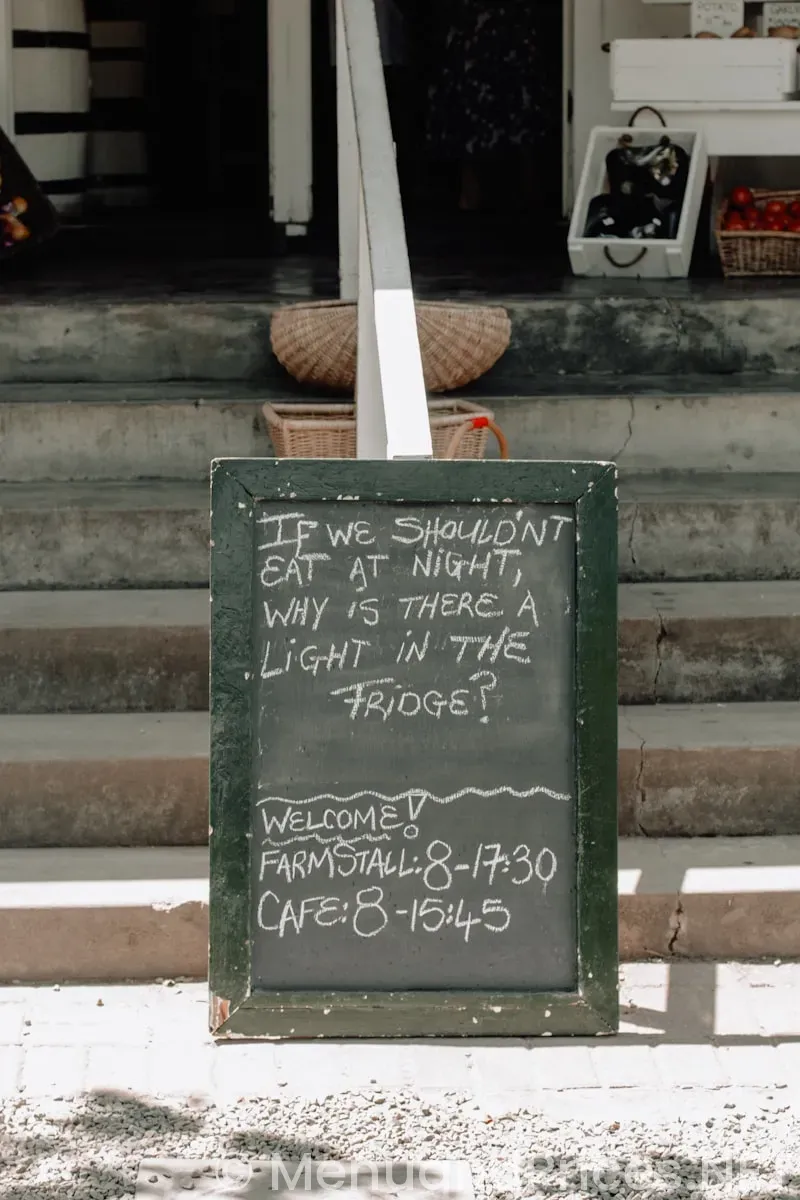 POTATO
IF WE SHOULD'NT
EAT AT NIGHT,
WHY IS THERE A
LIGHT IN THE
FRIDGE?
WELCOME!
FARMSTALL: 8-17:30
CAFE: 8-15:45